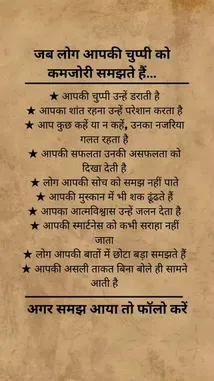 जब लोग आपकी चुप्पी को
कमजोरी समझते हैं...
★ आपकी चुप्पी उन्हें डराती है
★ आपका शांत रहना उन्हें परेशान करता है
★ आप कुछ कहें या न कहें, उनका नजरिया
गलत रहता है
★ आपकी सफलता उनकी असफलता को
दिखा देती है
★ लोग आपकी सोच को समझ नहीं पाते
★ आपकी मुस्कान में भी शक ढूंढते हैं
★ आपका आत्मविश्वास उन्हें जलन देता है
★ आपकी स्मार्टनेस को कभी सराहा नहीं
जाता
★ लोग आपकी बातों में छोटा बड़ा समझते हैं
★ आपकी असली ताकत बिना बोले ही सामने
आती है
अगर समझ आया तो फॉलो करें